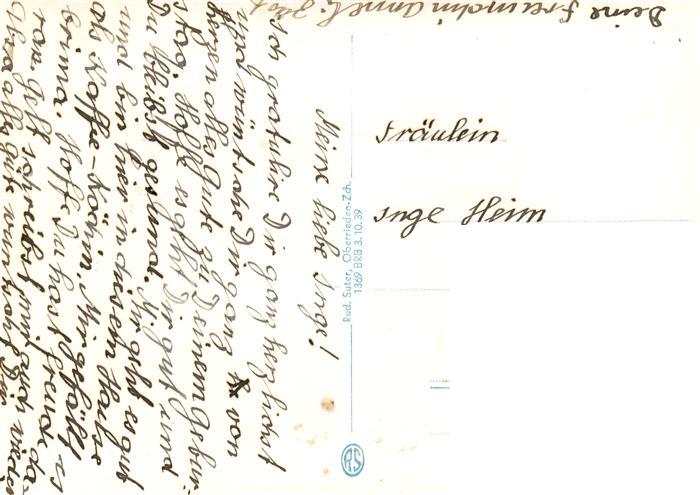 Meine liebe Inge!
Ich gratuliere Dir ganz herzlichst
und wünsche Dir ganz von
herzen alles Gute zu Deinem Gebur-
stag. Hoffe es geht Dir gut und
Du bleibst gesund. Mir geht es gut
und bin hier in diesem Hause
als Kaffe-Köchin. Mir gefällt es
prima. Hoffe Du hast freude da-
ran. Gelt schreibst mir auch wieder
Alles gute wünscht Dir
Deine Freundin Anneli
Fräulein
Inge Heim
Rud. Suter, Oberrieden-Zch.
1369 BRB 3.10.39
RS